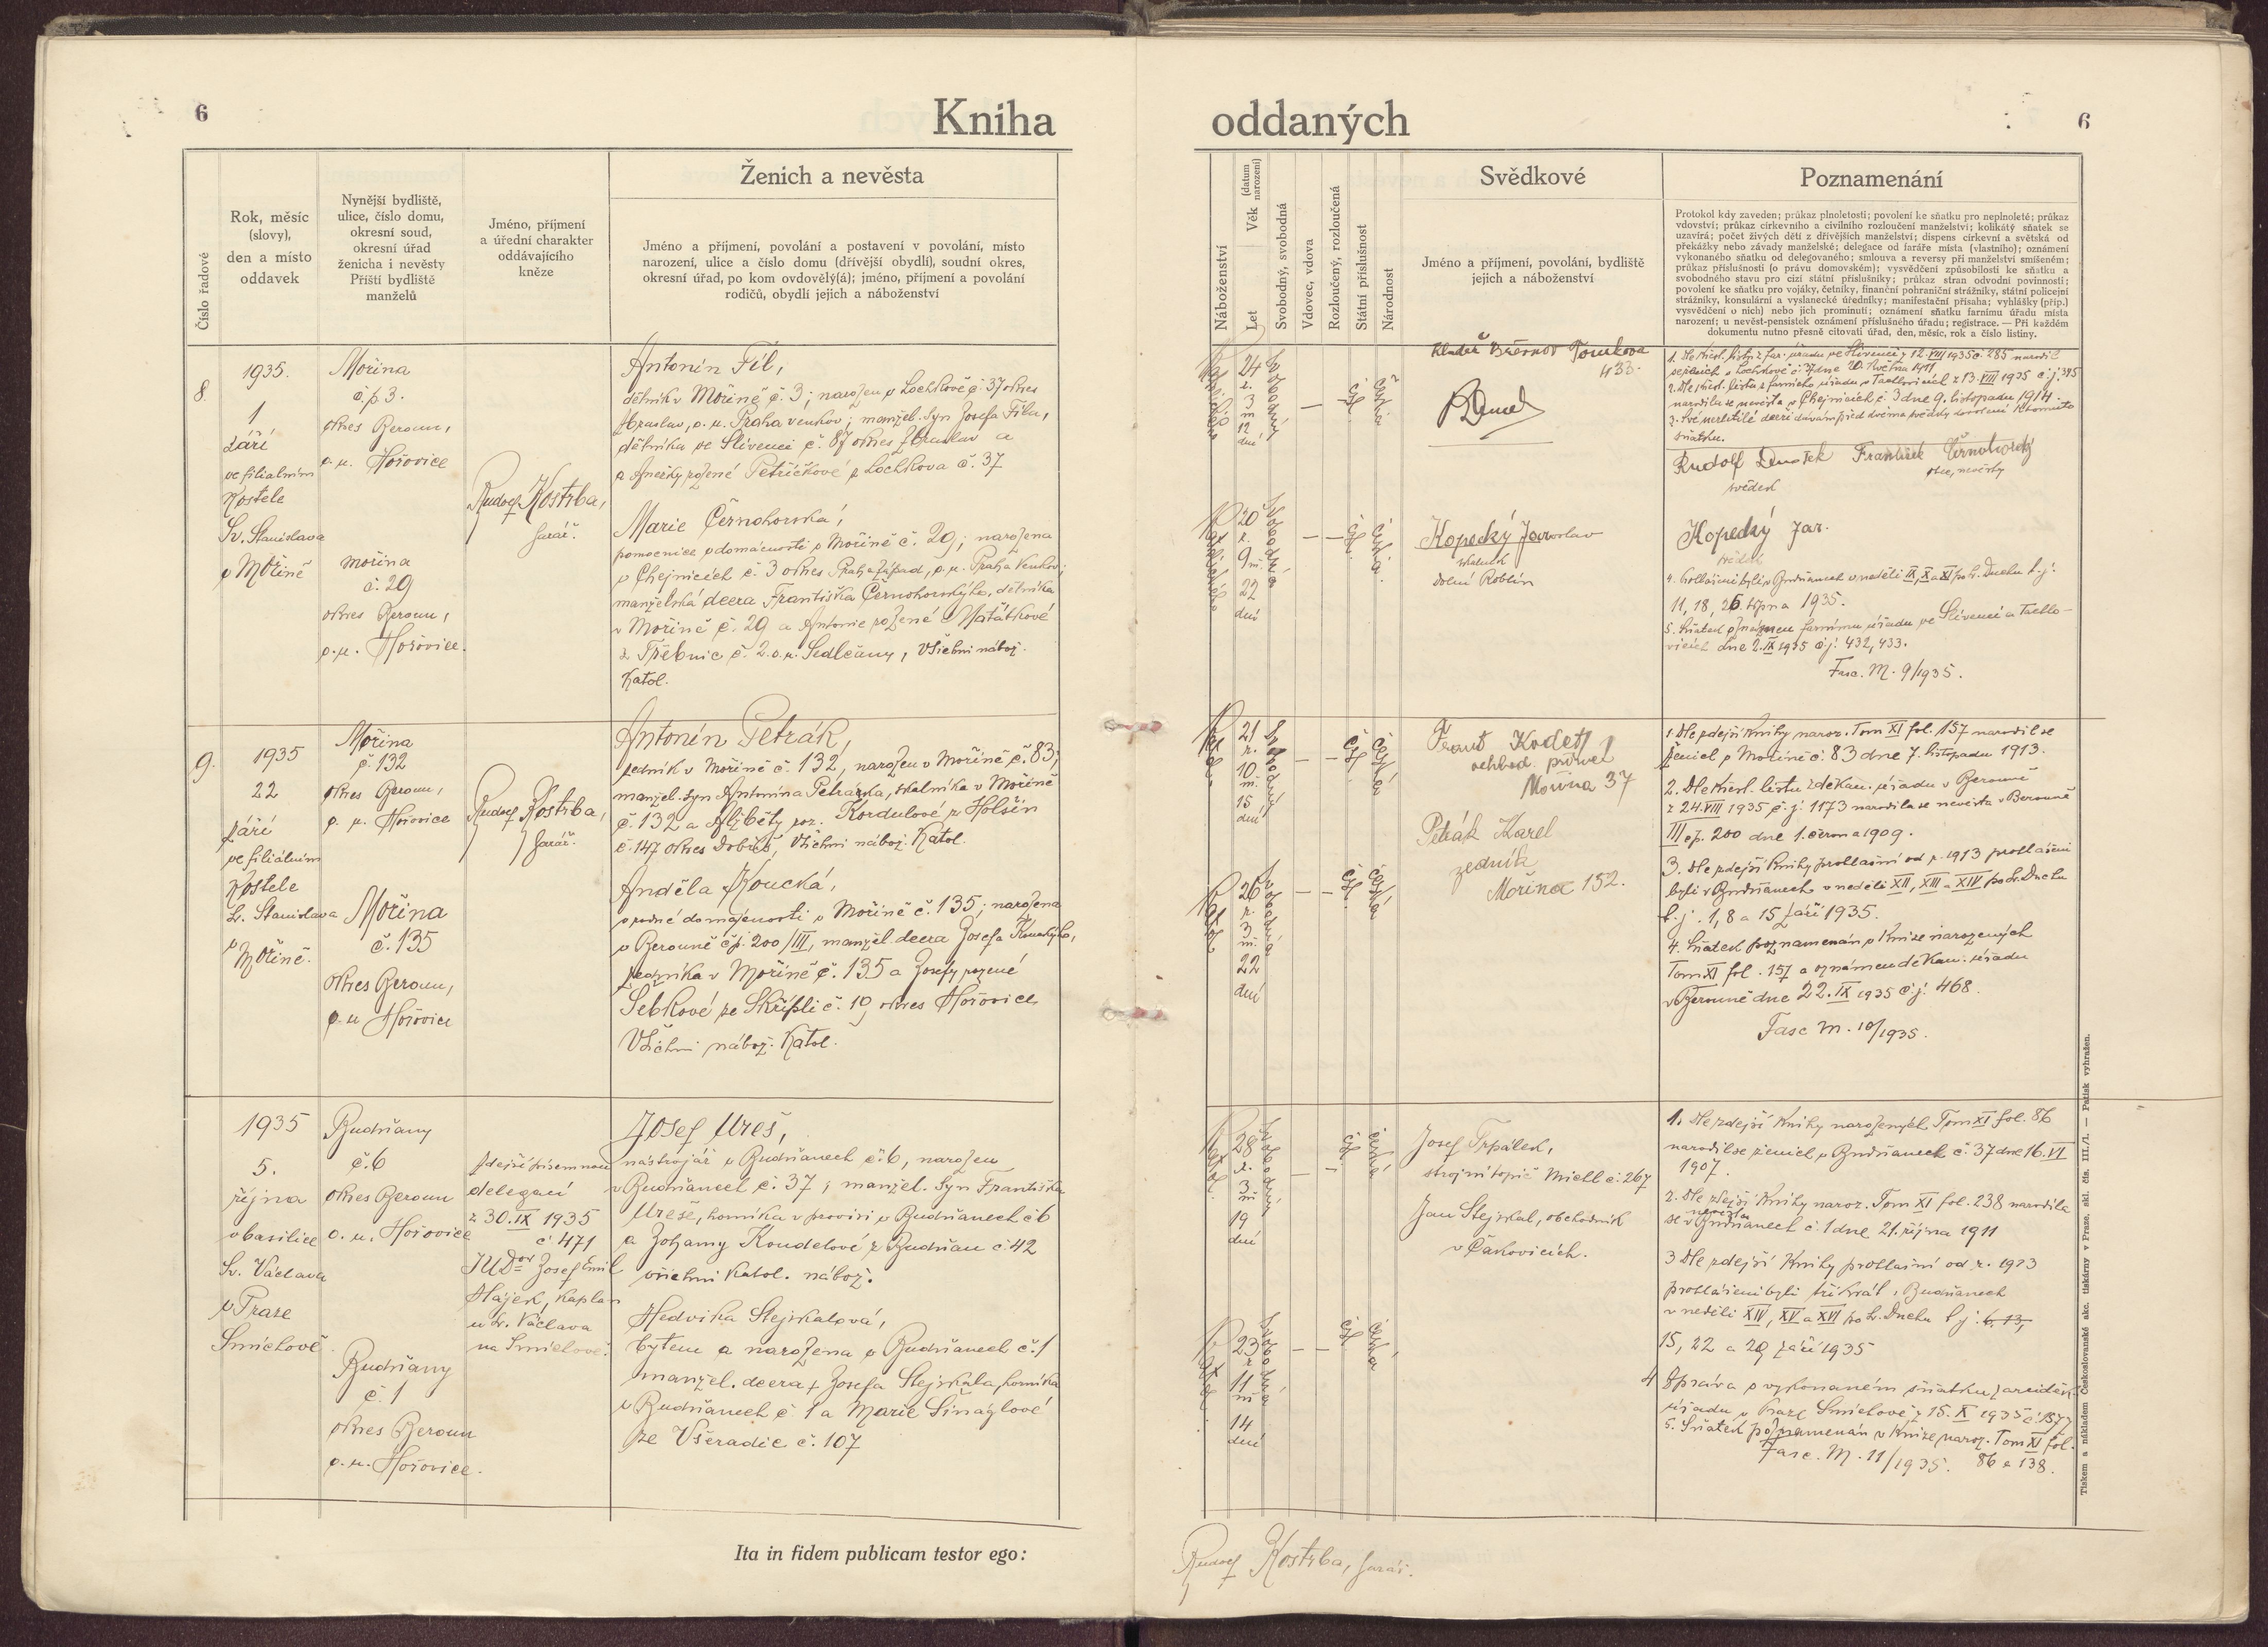 6
Kniha
Ženich a nevěsta
Číslo řadové
Rok, měsíc
(slovy),
den a místo
oddavek
Nynější bydliště,
ulice, číslo domu,
okresní soud,
okresní úřad
ženicha i nevěsty
Příští bydliště
manželů
Jméno, příjmení
a úřední charakter
oddávajícího
kněze
Jméno a příjmení, povolání a postavení v povolání, místo
narození, ulice a číslo domu (dřívější obydlí), soudní okres,
okresní úřad, po kom ovdovělý(á); jméno, příjmení a povolání
rodičů, obydlí jejich a náboženství
8.
1935.
1
září
ve filialním
Kostele
Sv. Stanislava
v Mořině
Mořina
č.p 3.
okres Beroun,
o. u. Hořovice
Mořina
č. 29
okres Beroun,
o. u. Hořovice.
Rudolf Kostrba,
farář.
Antonín Fíl,
dělník v Mořině č. 3; narozen v Lochkově č. 37 okres
Zbraslav, o. u. Praha venkov; manžel. syn Josefa Fíla,
dělníka ve Slivenci č. 87 okres Zbraslav a
a Anežky rozené Petříčkové z Lochkova č. 37
Marie Černohorská,
pomocnice v domácnosti v Mořině č. 29; narozena
v Chejnicích č. 3 okres Praha západ, o. u. Praha venkov;
manželská dcera Františka Černohorského, dělníka
v Mořině č. 29 a Antonie rozené Matátkové
z Třebnic č. 2. o. u. Sedlčany, Všichni nábož.
Katol.
9.
1935
22
září
ve filiálním
Kostele
Sv. Stanislava
v
Mořině.
Mořina
č. 132
okres Beroun,
o. u. Hořovice
Mořina
č. 135
okres Beroun,
o. u Hořovice
Rudolf Kostrba,
farář.
Antonín Petrák,
zedník v Mořině č. 132, narozen v Mořině č. 83;
manžel. syn Antonína Petráka, skalníka v Mořině
č. 132 a Alžběty roz. Kordulové z Holšin
č. 147 okres Dobříš, Všichni nábož. Katol.
Anděla Koucká,
v rodné domácnosti v Mořině č. 135; narozena
v Berouně čp. 200/III, manžel. dcera Josefa Kouckého,
zedníka v Mořině č. 135 a Josefy rozené
Šebkové ze Skřiple č. 19 okres Hořovice
Všichni nábož. Katol.
1935
5.
října
v basilice
Sv. Václava
v Praze
Smíchově
Budňany
č. 6
okres Beroun
o. u. Hořovice
Budňany
č. 1
okres Beroun
o. u. Hořovice.
zdejší písemnou
delegací
z 30. IX 1935
č 471
JUDor Josef Emil
Hájek, kaplan
u sv. Václava
na Smíchově.
Josef Ureš,
nástrojář v Budňanech č. 6, narozen
v Budňanech č. 37; manžel. syn Františka
Ureše, horníka v provisi v Budňanech č 6
a Johany Koudelové z Budňan č. 42
všichni katol. nábož.
Hedvika Stejskalová,
bytem a narozena v Budňanech č. 1
manžel. dcera + Josefa Stejskala, horníka
v Budňanech č. 1 a Marie Šináglové
ze Všeradic č. 107
Ita in fidem publicam testor ego:
oddaných
6
Náboženství
Let Věk (datum narození)
Svobodný, svobodná
Vdovec, vdova
Rozloučený, rozloučená
Státní příslušnost
Národnost
Svědkové
Jméno a příjmení, povolání, bydliště
jejich a náboženství
Poznamenání
Protokol kdy zaveden; průkaz plnoletosti; povolení ke sňatku pro neplnoleté; průkaz
vdovství; průkaz církevního a civilního rozloučení manželství; kolikátý sňatek se
uzavírá; počet živých dětí z dřívějších manželství; dispens církevní a světská od
překážky nebo závady manželské; delegace od faráře místa (vlastního); oznámení
vykonaného sňatku od delegovaného; smlouva a reversy při manželství smíšeném;
průkaz příslušnosti (o právu domovském); vysvědčení způsobilosti ke sňatku a
svobodného stavu pro cizí státní příslušníky; průkaz stran odvodní povinnosti;
povolení ke sňatku pro vojáky, četníky, finanční pohraniční strážníky, státní policejní
strážníky, konsulární a vyslanecké úředníky; manifestační přísaha; vyhlášky (příp.)
vysvědčení o nich) nebo jich prominutí; oznámení sňatku farnímu úřadu místa
narození; u nevěst-pensistek oznámení příslušného úřadu; registrace. — Při každém
dokumentu nutno přesně citovati úřad, den, měsíc, rok a číslo listiny.
24
r.
3
m
12
dní
svobodný
—
čsl
česká
Břevnov Tomkova
433.
1. Dle křest. listu z far. úřadu ve Slivenci z 12. VIII 1935 č. 285 narodil
se ženich v Lochkově č. 37 dne 20. května 1911
2. Dle křest. listu z farního úřadu v Tachlovicích z 13. VIII 1935 č. j. 345
narodila se nevěsta v Chejnicích č. 3 dne 9. listopadu 1914.
3. Své nezletilé dceři dávám před dvěma svědky svolení k tomuto
sňatku.
Rudolf František Černohorský
svědek otec nevěsty
20
r.
9 m.
22
dní
svobodná
— —
čsl
česká.
Kopecký Jaroslav
skalník
dolní Roblín
Kopecký Jar.
svědek
4. Prohlášeni byli v Budňanech v neděli IX, X a XI po sv. Duchu t. j.
11, 18, 25. srpna 1935.
5. Sňatek oznámen farnímu úřadu ve Slivenci a Tachlo-
vicích dne 2. IX 1935 č. j. 432, 433.
Fasc. M. 9/1935.
Katol.
21
r.
10
m.
15
dní
svobodný
— —
čsl
česká
Frant Kodet
obchod. příruč
Mořina 37
Petrák Karel
zedník
Mořina 152.
1. Dle zdejší Knihy naroz. Tom XI fol. 157 narodil se
ženich v Mořině č. 83 dne 7. listopadu 1913.
2. Dle křest. listu z děkan. úřadu v Berouně
z 24. VIII 1935 č. j. 1173 narodila se nevěsta v Berouně
III čp. 200 dne 1. června 1909.
3. Dle zdejší Knihy prohlášní od r. 1913 prohlášeni
byli v Budňanech v neděli XII, XIII a XIV po sv. Duchu
t. j. 1, 8 a 15 září 1935.
4. Sňatek poznamenán v Knize narozených
Tom XI fol. 157 a oznámen děkan. úřadu
v Berouně dne 22. IX 1935 č. j. 468.
Fasc m. 10/1935.
Katol
26
r.
3
m.
22
dní
svobodná
— —
čsl
česká
Katol.
28
r.
3
m
19
dní
svobodný
— —
čsl
česká
Josef Trpálek,
strojní topič Michl č. 267
Jan Stejskal, obchodník
v Čakovicích.
1. Dle zdejší Knihy narozených Tom XI fol. 86
narodil se ženich v Budňanech č. 37 dne 16. VI
1907.
2. Dle zdejší Knihy naroz. Tom XI fol. 238 narodila
nevěsta
se v Budňanech č. 1 dne 21. října 1911
3 Dle zdejší Knihy prohlašní od r. 1913
prohlášeni byli třikrát v Budňanech
v neděli XIV, XV a XVI po sv. Duchu t. j. 6. 13,
15, 22 a 29 září 1935
4 Zpráva o vykonaném sňatku z arciděk.
úřadu v Praze Smíchově z 15. X 1935 č. 1577
5. Sňatek poznamenán v Knize naroz. Tom XI fol.
86 a 138.
Fasc. M. 11/1935.
Katol.
23
r
11
m
14
dní
svobodná
— —
čsl
česká
Rudolf Kostrba, farář.
Tiskem a nákladem Československé akc. tiskárny v Praze, skl. čís. III./1. — Patisk vyhražen.